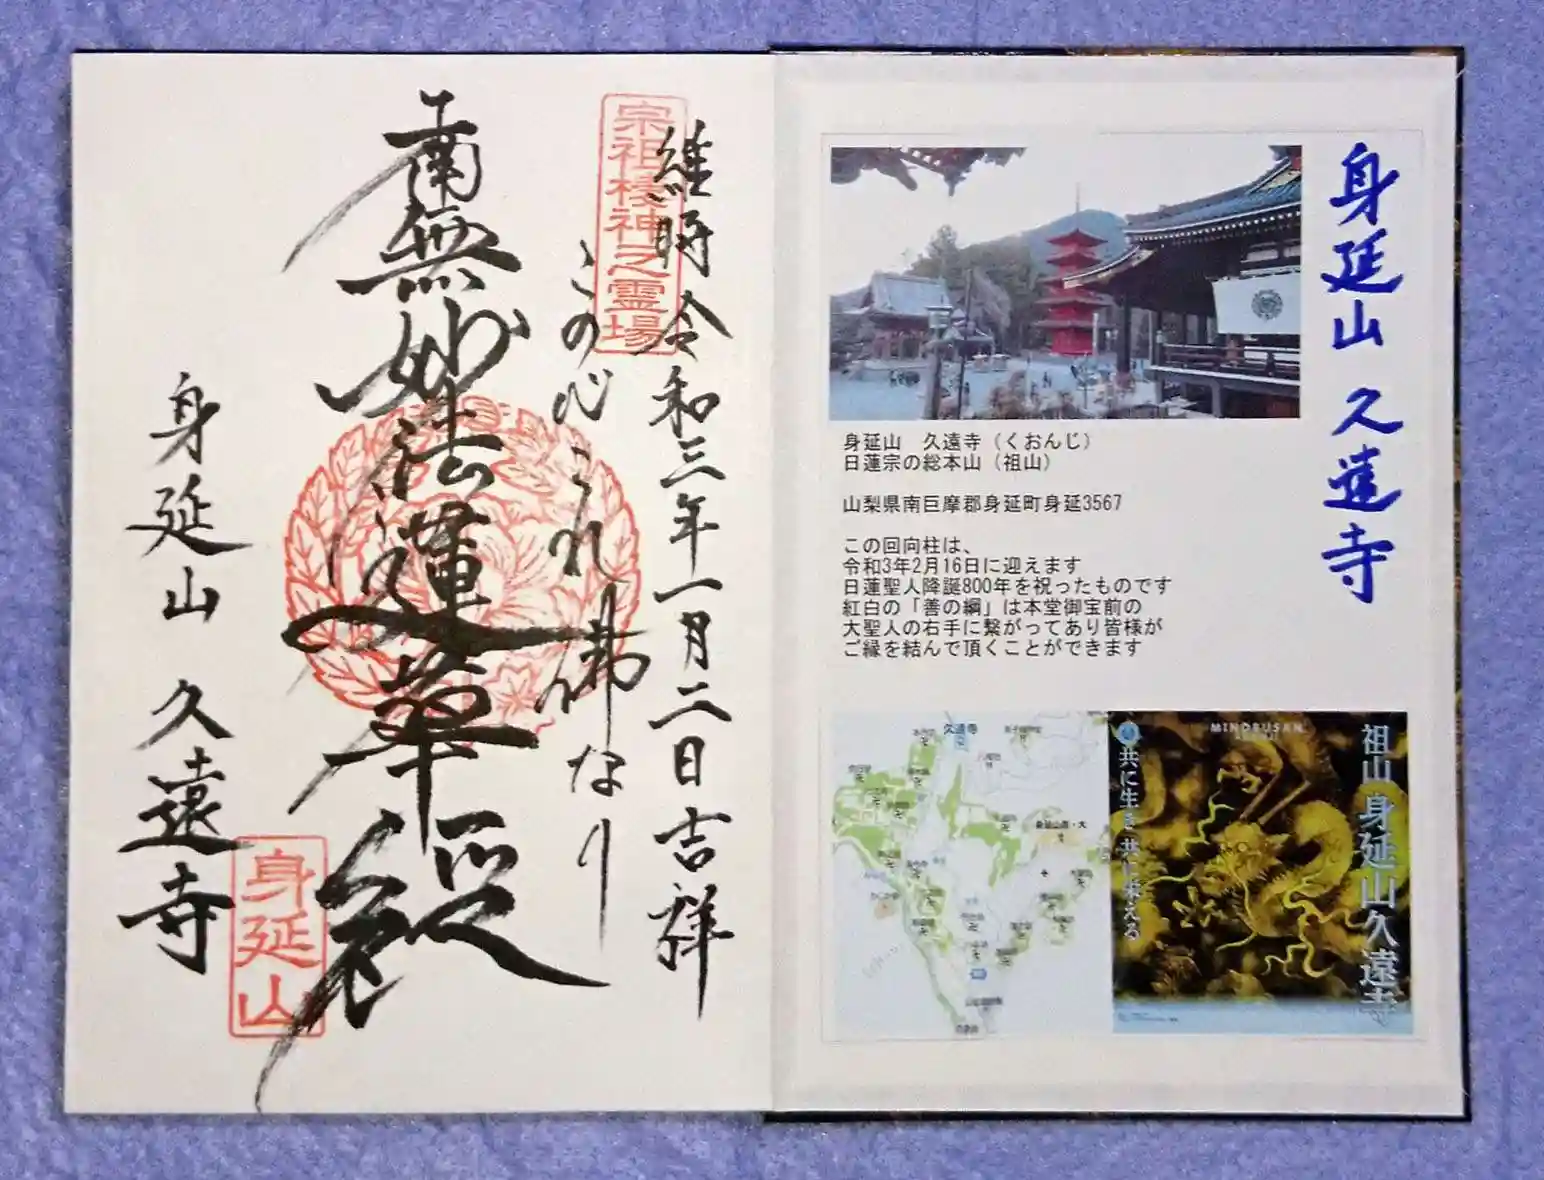 身延山 久遠寺
身延山　久遠寺（くおんじ）
日蓮宗の総本山（祖山）
山梨県南巨摩郡身延町身延3567
この回向柱は、
令和3年2月16日に迎えます
日蓮聖人降誕800年を祝ったものです
紅白の「善の綱」は本堂御宝前の
大聖人の右手に繋がってあり皆様が
ご縁を結んで頂くことができます
久遠寺
MINOBUSAN
祖山 身延山久遠寺
共に生き 共に栄える
宗祖棲神之霊場
維時令和三年一月二日吉祥
この心これ佛なり
南無妙法蓮華経
身延山 久遠寺
身延山